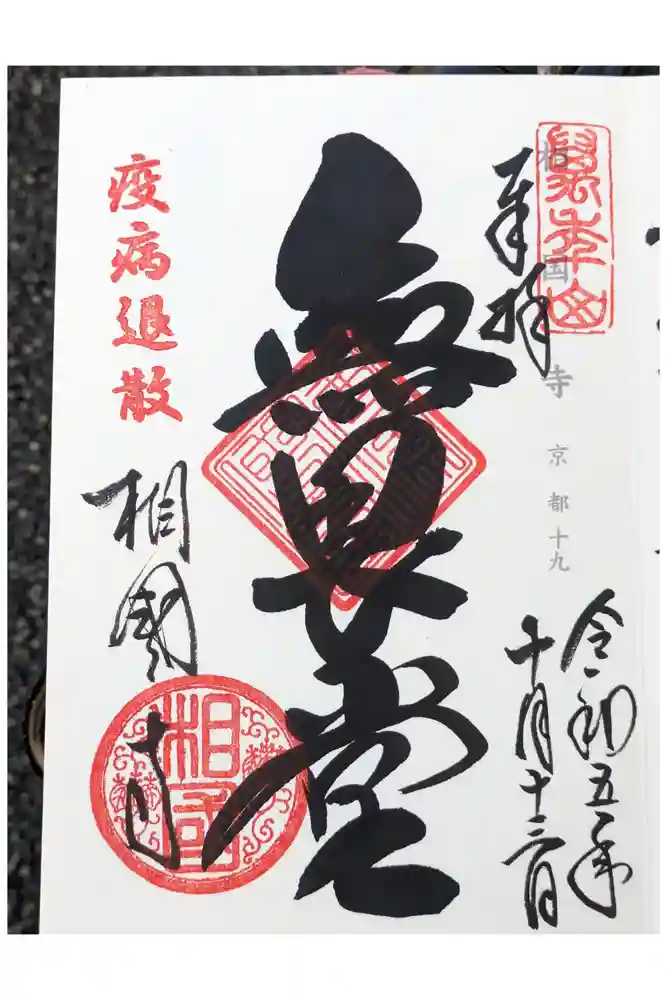 萬年山
相国寺 京都十九
奉拝
令和五年
十月十三日
無畏堂
疫病退散
相國寺
相國